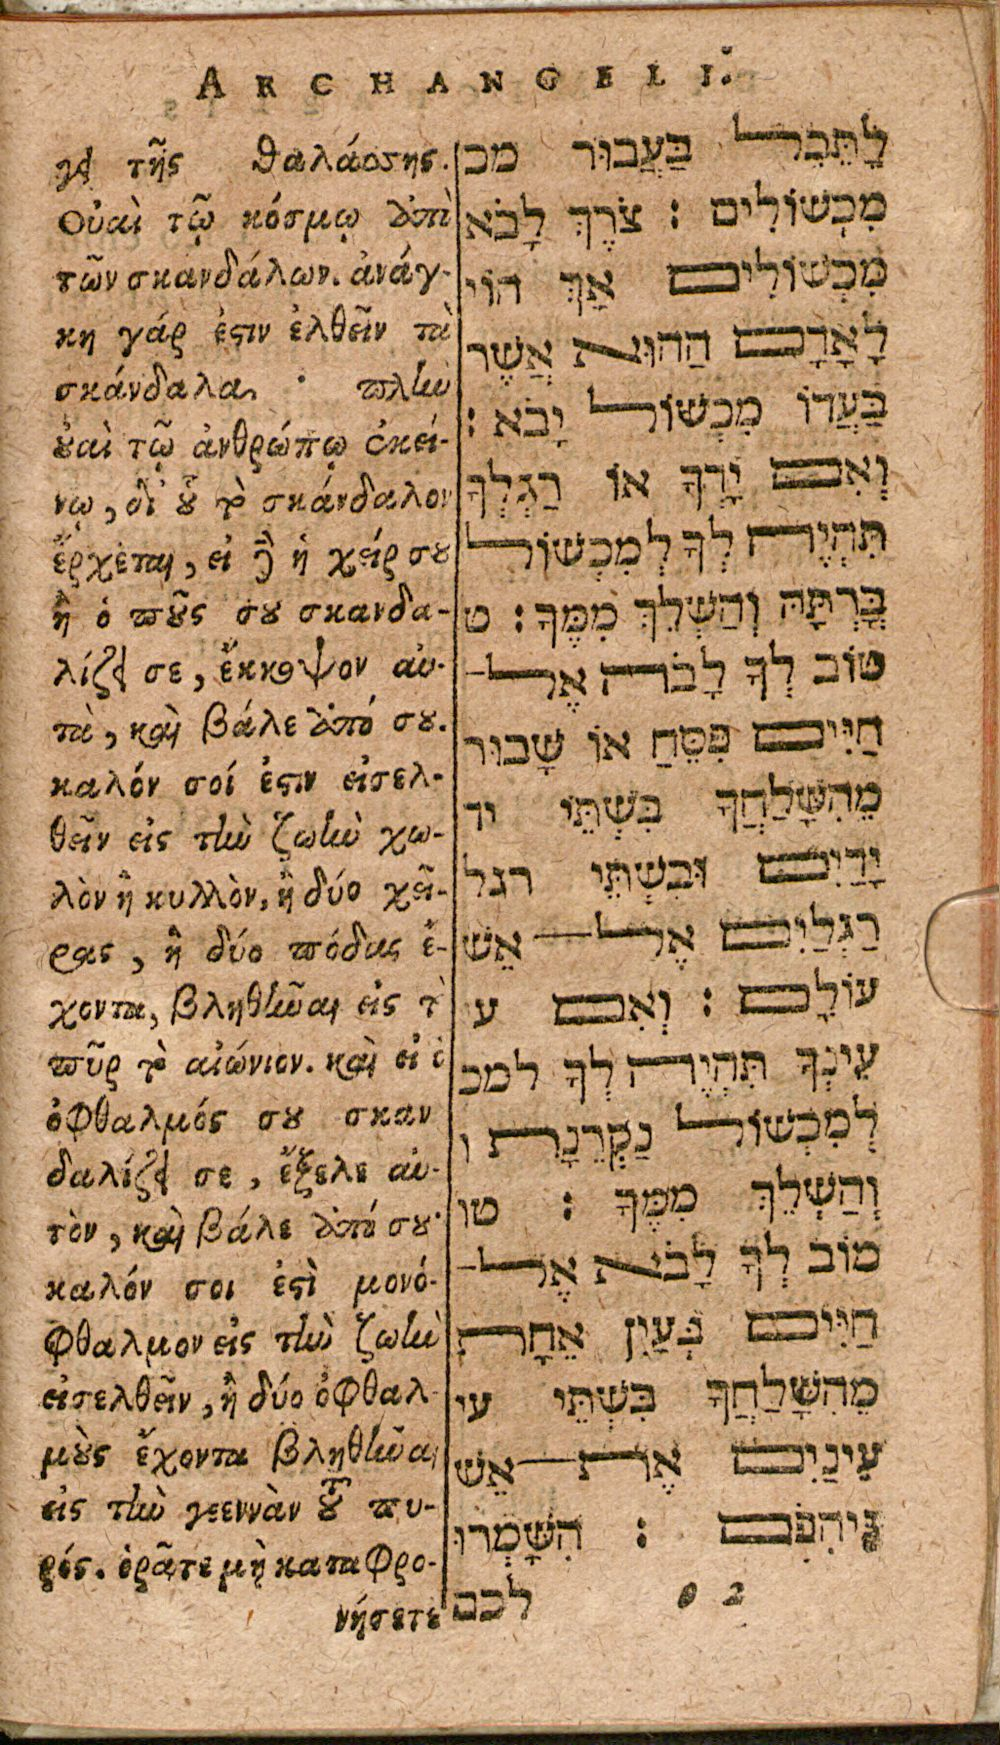 ARCHANGELI.
γει τῆς θαλάσσης.
Οὐαὶ τῷ κόσμῳ ἀπὸ
τῶν σκανδάλων. ἀνάγ-
κη γάρ ἐστιν ἐλθεῖν τὰ
σκάνδαλα. πλὴν
οὐαὶ τῷ ἀνθρώπῳ ἐκεί-
νῳ, δι' οὗ τὸ σκάνδαλον
ἔρχεται, εἰ δὲ ἡ χείρ σου
ἢ ὁ ποῦς σου σκανδα-
λίζει σε, ἔκκοψον αὐ-
τὰ, καὶ βάλε ἀπό σου.
καλόν σοί ἐστιν εἰσελ-
θεῖν εἰς τὴν ζωὴν χω-
λὸν ἢ κυλλὸν, ἢ δύο χεῖ-
ρας, ἢ δύο πόδας ἔ-
χοντα, βληθῆναι εἰς τὸ
πῦρ τὸ αἰώνιον. καὶ εἰ ὁ
ὀφθαλμός σου σκαν
δαλίζει σε, ἔξελε αὐ-
τὸν, καὶ βάλε ἀπό σου·
καλόν σοι ἐστὶ μονό-
φθαλμον εἰς τὴν ζωὴν
εἰσελθεῖν, ἢ δύο ὀφθαλ-
μοὺς ἔχοντα βληθῆναι
εἰς τὴν γεεννὰν τοῦ πυ-
ρός. ὁρᾶτε μὴ καταφρο-
νήσετε
לָתֵבֵל בַּעֲבוּר מכ
מִכְשׁוֹלִים : צֹרֶךְ לָבֹא
מִכְשׁוֹלִים אָךְ הוֹי
לָאָדָם הַהוּא אֲשֶׁר
בַּעֲדוֹ מִכְשׁוֹל יָבֹא :
וְאִם יָדְךָ אוֹ רַגְלְךָ
תִּהְיֶה לְךָ לְמִכְשׁוֹל
בֳּרְתָּהּ וְהַשְׁלֵךְ מִמֶּךָ : ט
טוֹב לְךָ לָבֹה אֶל־
חַיִּים פִּסֵּחַ אוֹ שָׁבוּר
מֵהִשָּׁלַחֲךָ בִּשְׁתֵּי יד
יָדַיִם וּבִשְׁתֵּי רגל
רַגְלַיִם אֶל־אֵשׁ
עוֹלָם : וְאִם ע
עֵינְךָ תִּהְיֶה לְךָ למכ
לְמִכְשׁוֹל נַקְּרֵנָה ו
וְהַשְׁלֵךְ מִמֶּךָ : טו
טוֹב לְךָ לָבֹא אֶל־
חַיִּים בְּעַיִן אֶחָת
מֵהִשָּׁלַחֲךָ בִּשְׁתֵּי עי
עֵינַיִם אֶת־אֵשׁ
גֵּיהִנֹּם : הִשָּׁמְרוּ
לכם
O 2